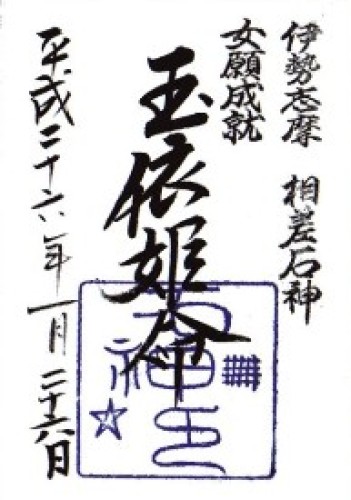 伊勢志摩 相差石神
女願成就
玉依姫命
平成二十六年一月二十六日
石神